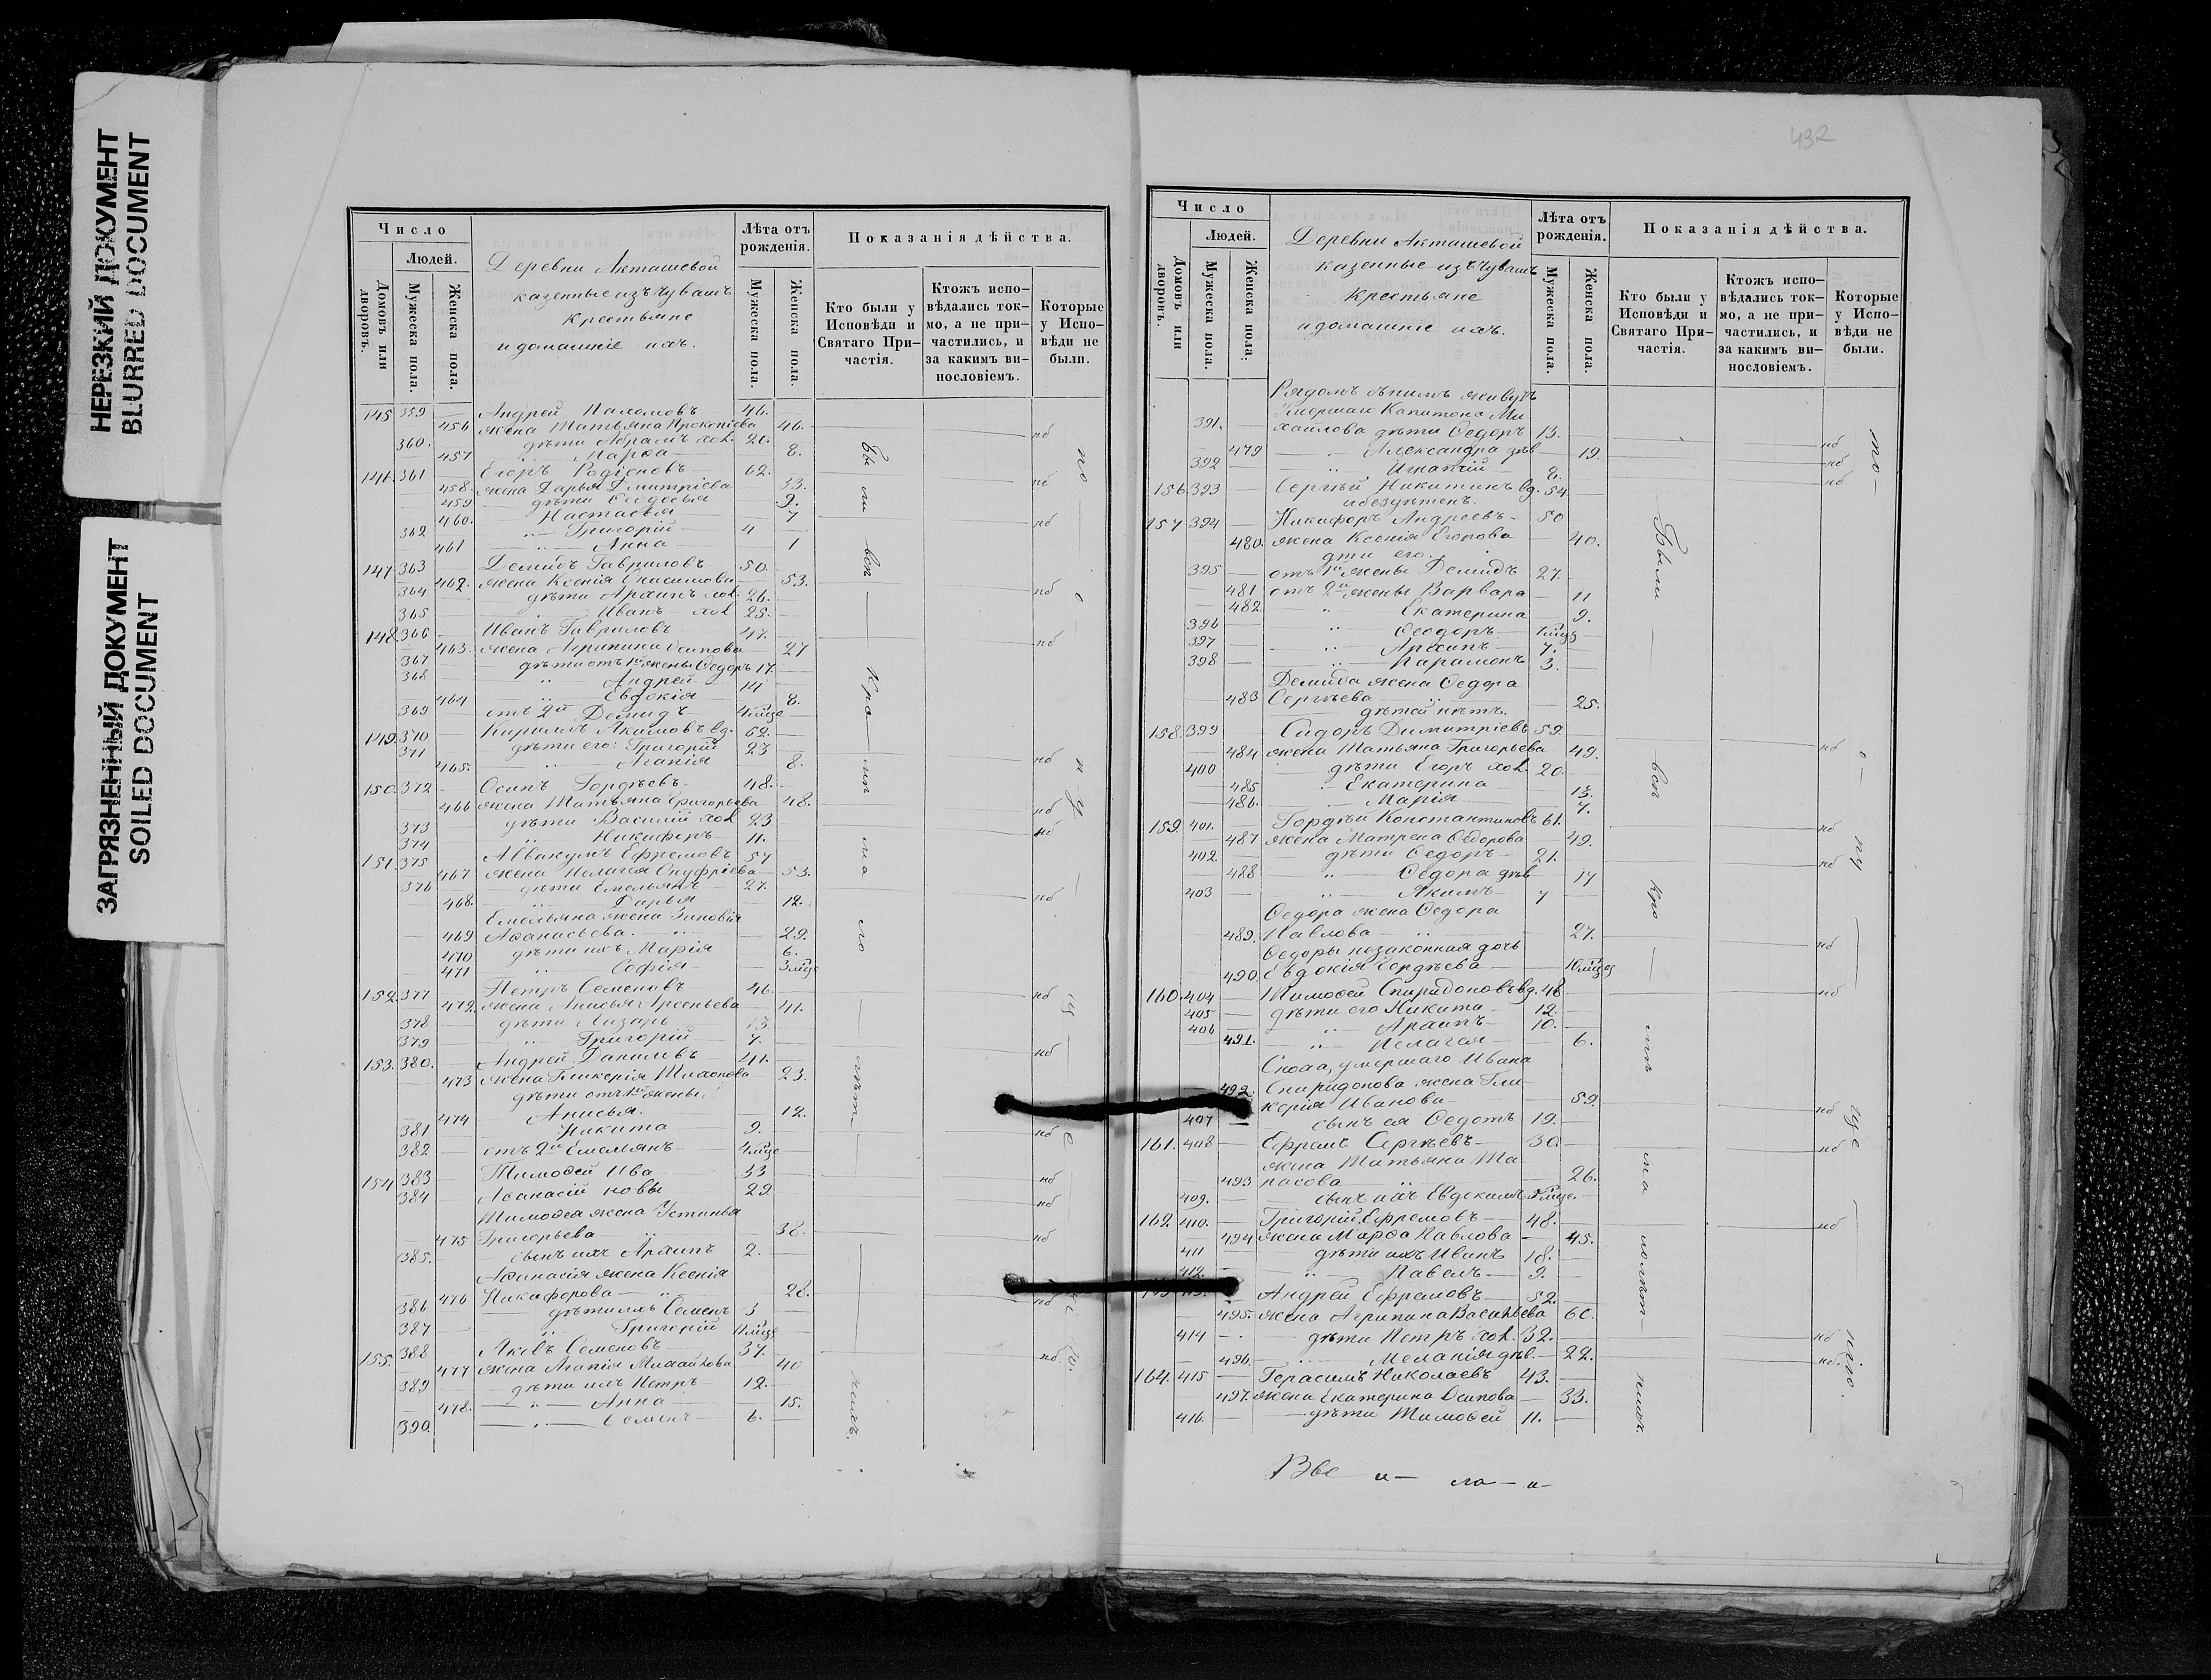 НЕРЕЗКИЙ ДОКУМЕНТ
BLURRED DOCUMENT
ЗАГРЯЗНЕННЫЙ ДОКУМЕНТ
SOILED DOCUMENT
Число
Людей.
Домовъ или дворовъ.
Мужеска пола.
Женска пола.
Деревни Акташевой
казенные изъ чувашъ
крестьяне
и домашніе ихъ.
Лѣта отъ рожденія.
Мужеска пола.
Женска пола.
Показанія дѣйства.
Кто были у Исповѣди и Святаго Причастія.
Ктожъ исповѣдались токмо, а не причастились, и за какимъ винословіемъ.
Которые у Исповѣди не были.
145 359 — Андрей Пахомовъ 46.
456 жена Татьяна Прокопіева 46. нб
360. дѣти Абрамъ хол. 20.
457 Марѳа 8.
146. 361 Егоръ Родіоновъ 62.
458. жена Дарья Дмитріева 33. нб
459 дѣти Ѳеодосья 9.
460. Настасья 7
362 Григорій 4 нб
461 Анна 1
147 363 Демидъ Гавриловъ 50.
462. жена Ксенія Онисимова 53.
364 дѣти Архипъ хол. 26. нб
365 Иванъ хол 25.
148. 366 Иванъ Гавриловъ 47.
463. жена Агрипина Осипова 27 нб
367 дѣти отъ 1й жены Ѳедоръ 17.
368 Андрей 14
464 Евдокія 8.
369 отъ 2й Демидъ
149. 370 Кирилъ Акимовъ вд. 62.
371 дѣти его: Григорій 23
465. Агапія 8. нб
150. 372 Осипъ Гордѣевъ 48.
466 жена Татьяна Григорьева 48. нб
373 дѣти Василій хол 23 нб
374 Никифоръ 11.
151. 375 Аввакумъ Ефремовъ 57
467 жена Пелагея Онуфріева 53.
376 дѣти Емельянъ 27.
468. Дарья 12. нб
Емельяна жена Зиновія
469 Аѳанасьева. 29.
470 дѣти ихъ Марія 6.
471 Софія
152. 377 Петръ Семеновъ 46.
472 жена Анисья Арсеньева 41. нб
378 дѣти Лазарь 13.
379 Григорій 7.
153. 380. Андрей Даниловъ 41. нб
473 жена Гликерія Тихонова 23.
дѣти отъ 1й жены:
474 Анисья. 12.
381 Никита 9. нб
382 отъ 2й Емельянъ
154 383 Тимоѳей Ива 33 нб
384 Аѳанасій новы 29 нб
Тимоѳея жена Устинья
475 Григорьева 38. нб
385. сынъ ихъ Архипъ 2.
Аѳанасія жена Ксенія
476 Никифорова 28.
386 дѣти ихъ Семенъ 3 нб
387 Григорій
155. 388 Яковъ Семеновъ 37. нб.
477 жена Агапія Михайлова 40
389 дѣти ихъ Петръ 12.
478. Анна 15.
390. Семенъ 6.
432
Число
Людей.
Домовъ или дворовъ.
Мужеска пола.
Женска пола.
Деревни Акташевой
казенные изъ чувашъ
крестьяне
и домашніе ихъ.
Лѣта отъ рожденія.
Мужеска пола.
Женска пола.
Показанія дѣйства.
Кто были у Исповѣди и Святаго Причастія.
Ктожъ исповѣдались токмо, а не причастились, и за какимъ винословіемъ.
Которые у Исповѣди не были.
Рядомъ съ нимъ живутъ
Умершаго Капитона Ми-
391. хайлова дѣти Ѳедоръ 13. нб
479 Александра дѣв 19. нб
392 Игнатій 8. нб
156. 393 Сергѣй Никитинъ вд. 54.
и бездѣтенъ.
157 394 Никифоръ Андреевъ 50
480. жена Ксенія Егорова 40.
дѣти его:
395 отъ 1й жены Демидъ 27.
481 отъ 2й жены Варвара 11
482 Екатерина 9.
396 Ѳеодоръ
397 Архипъ 7.
398 Парамонъ 3.
Демида жена Ѳедора
483 Сергѣева 25.
дѣтей нѣтъ.
158. 399 Сидоръ Димитріевъ 59.
484 жена Татьяна Григорьева 49. нб
400 дѣти Егоръ хол. 20.
485 Екатерина 13.
486. Марія 7.
159. 401. Гордѣй Константиновъ 61. нб
487 жена Матрена Ѳедорова 49.
402. дѣти Ѳедоръ 21. нб
488 Ѳедора дѣв 17
403 Якимъ 7
Ѳедора жена Ѳедора
489. Павлова 27. нб
Ѳедоры незаконная дочь
490. Евдокія Гордѣева
160. 404 Тимоѳей Спиридоновъ вд. 48 нб
405 дѣти его Никита 12.
406 Архипъ 10.
491. Пелагея 6.
Сноха, умершаго Ивана
492. Спиридонова жена Гли-
керія Иванова 59. нб
407 сынъ ея Ѳедотъ 19.
161. 408 Ефремъ Сергѣевъ 30. нб
жена Татьяна Та-
493 расова 26.
409. сынъ ихъ Евдокимъ
162 410. Григорій Ефремовъ 48. нб
494 жена Марѳа Павлова 45.
411 дѣти ихъ Иванъ 18.
412. Павелъ 9.
Андрей Ефремовъ 52.
495. жена Агрипина Васильева 60.
414 дѣти Петръ хол. 32. нб
496. Меланія дѣв. 22. нб.
164. 415 Герасимъ Николаевъ 43.
497. жена Екатерина Осипова 33.
416. дѣти Тимоѳей 11.